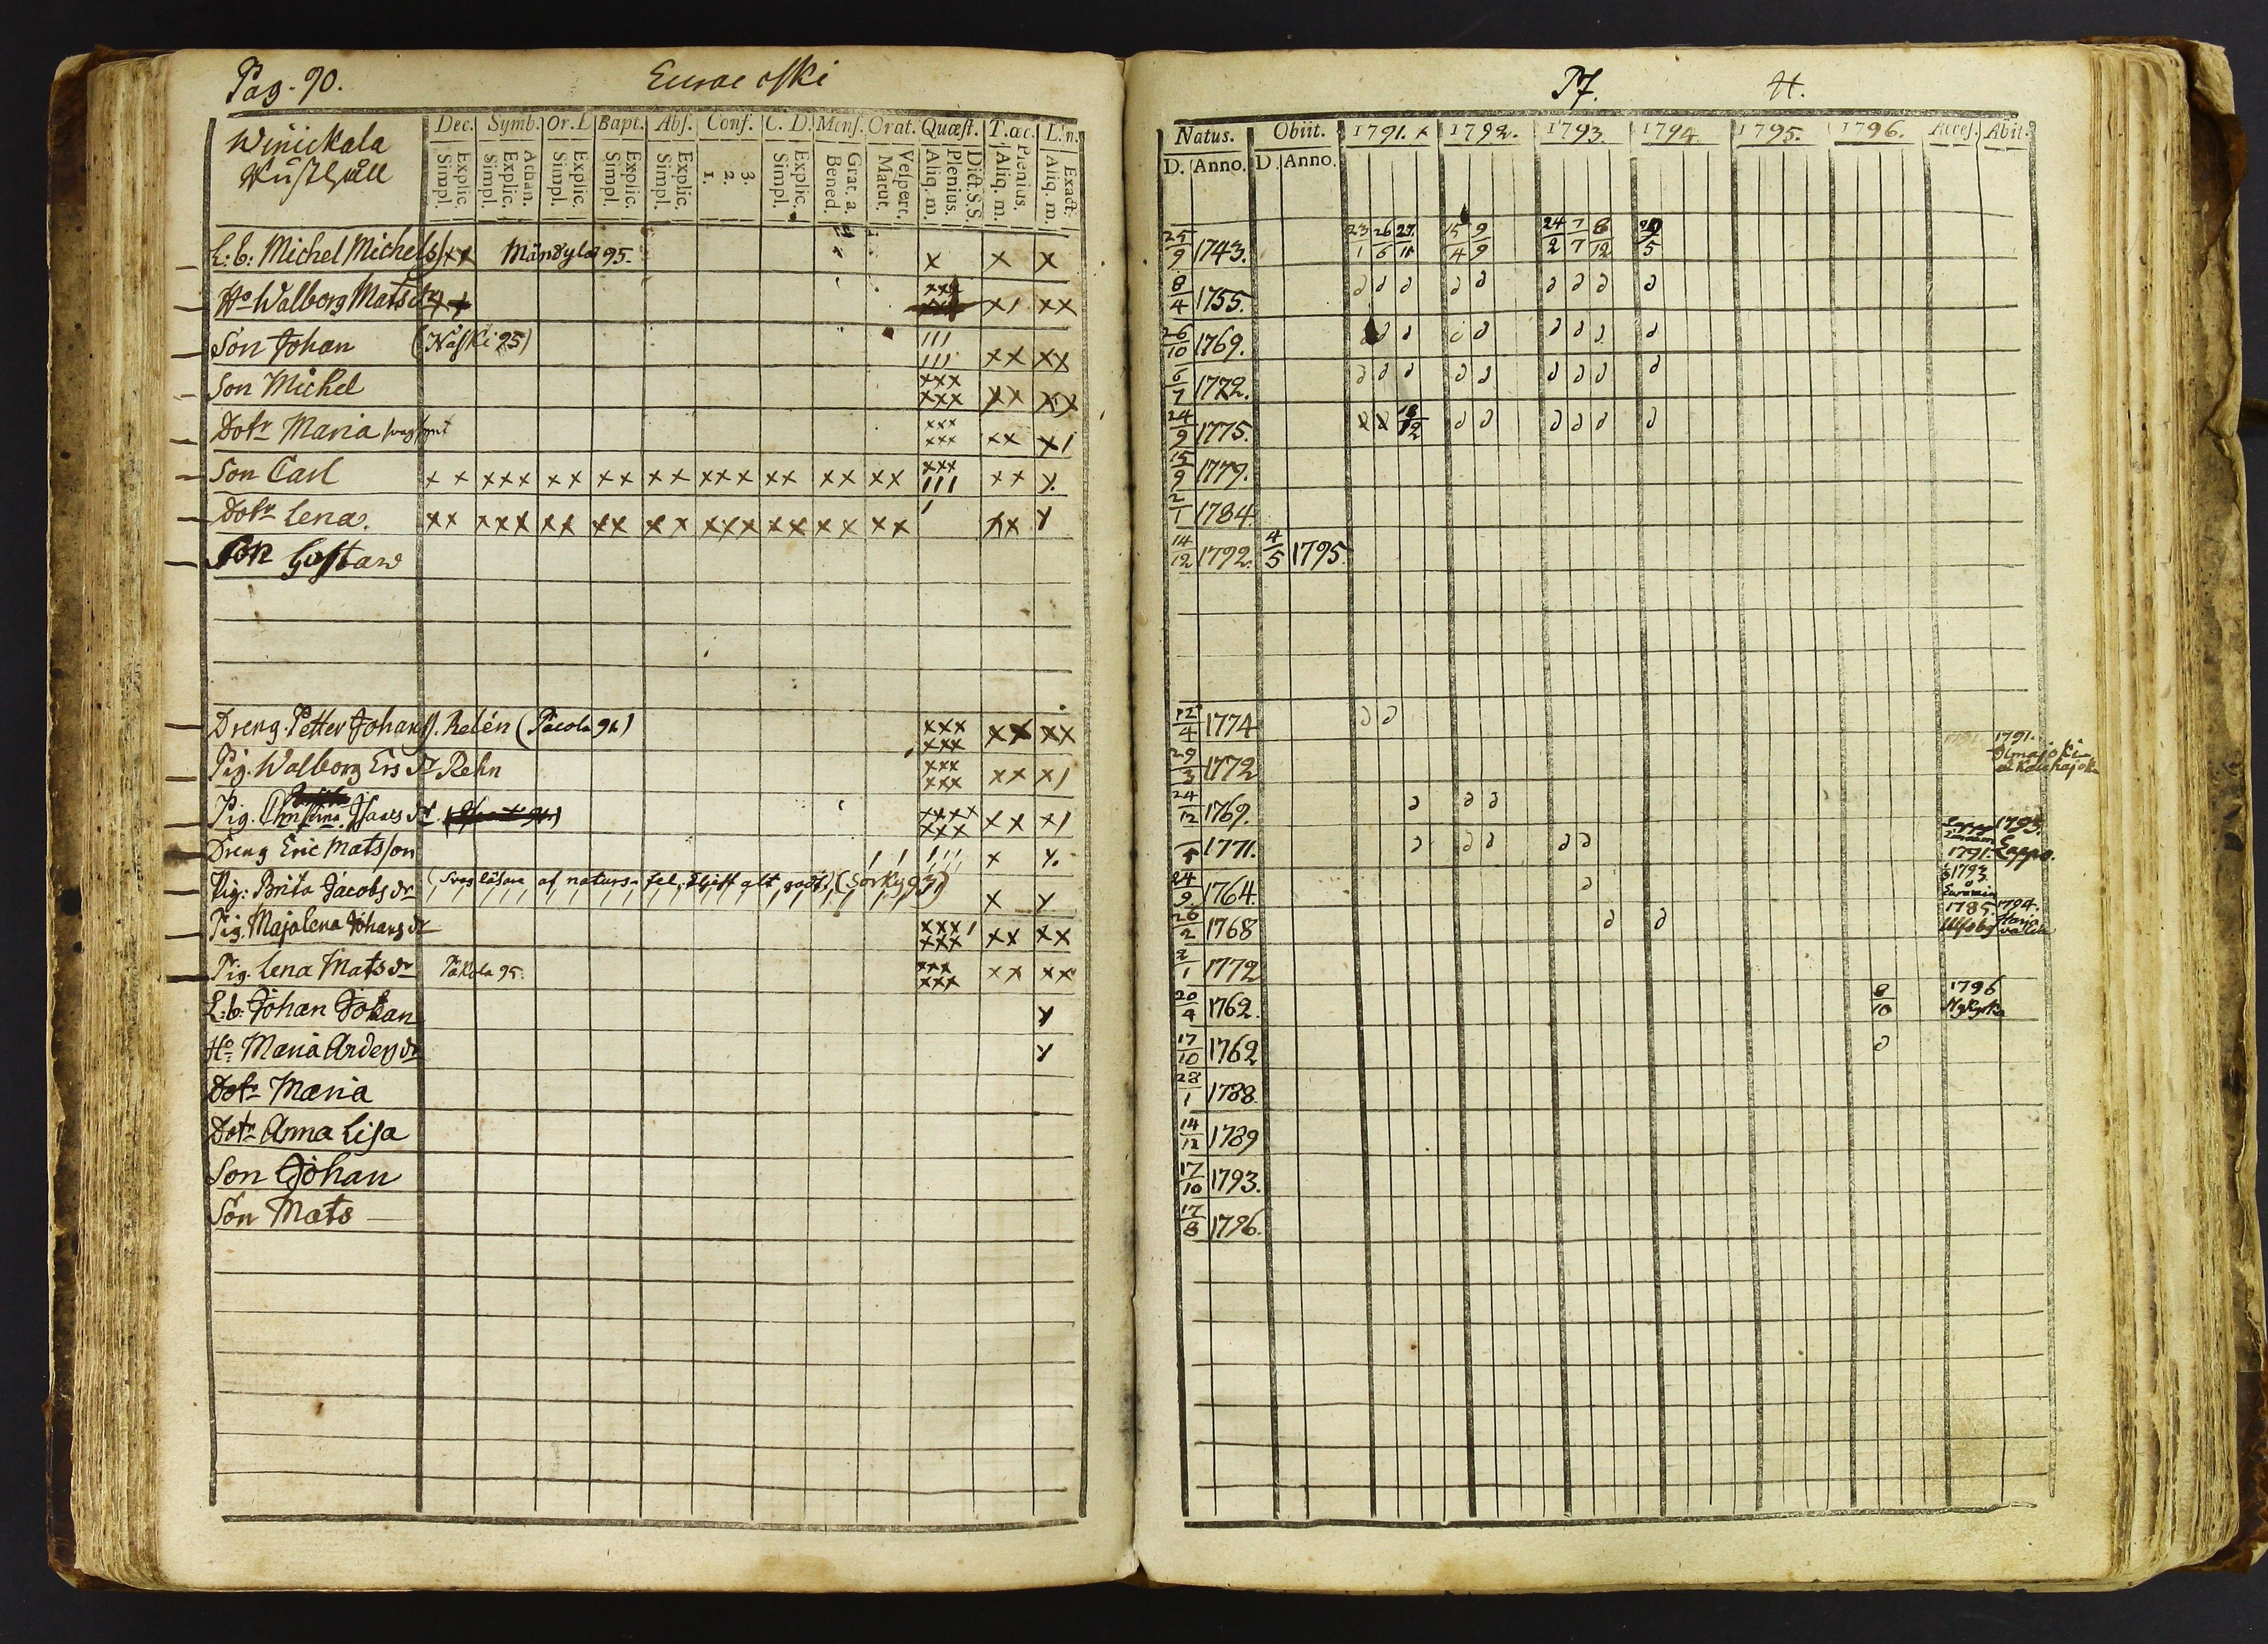 Pag. 90. Eurae åski
Winickala
Rusthåll
Dec. Symb. Or. D Bapt. Abs. Conf. C. D. Mens. Orat. Quæst. T. œc. L. n.
Explic. Simpl. Athan. Explic. Simpl. Explic. Simpl. Explic. Simpl. Explic. Simpl. 3. 2. 1. Explic. Simpl. Grat. a. Bened. Vespert. Matut. Dict. S.S. Plenius. Aliq. m. Plenius. Aliq. m. Exact. Aliq. m.
L:b: Michel Michels xx Mändylä 95. x x x
Ho Walborg Matsdr xxx x/ xx
Son Johan (Näski 95) /// /// xx xx
Son Michel xxx xxx xx xx
Dotr Maria xxx xxx xx x/
Son Carl x x xxx xx xx xx xxx xx xx xx xxx /// xx x
Dotr Lena. xx xxx xx xx xx xxx xx xx xx / xx x
Son Gustaw
Dreng. Petter Johans. Relén (Pacola 92) xxx xxx xx xx
Pig. Walborg Ersdr Rehn xxx xxx xx x/
Pig. Christina Isaacsdr xxxx xxx xx x/
Dreng Eric Matsson / / /// x x.
Pig: Brita Jacobsdr (Svag läsare af naturs fel, eljest alt godt) (Sorky 93) x x
Pig. Majalena Johansdr xxx/ xxx xx xx
Pig. Lena Matsdr Päkola 95. xxx xxx xx xx
L:b: Johan Johan x
Ho Maria Andersdr x
Dotr Maria
Dotr Anna Lisa
Son Johan
Son Mats
P7. H.
Natus. Obiit. 1791. x 1792. 1793. 1794. 1795. 1796. Acces. Abit.
D. Anno. D. Anno.
25/9 1743. 23/1 26/6 27/11 15/4 9/9 24/2 7/7 8/12 29/5
8/4 1755.
26/10 1769.
6/7 1772.
24/9 1775. 18/12
15/9 1779.
2/1 1784.
14/12 1792. 4/5 1795.
12/4 1774
29/3 1772 1791. 1791.
24/12 1769.
1771. 1791. 1793. Lappo.
24/9 1764. 1793.
26/2 1768 1785. Ulfsby 1794.
2/1 1772
20/4 1762. 8/10 1796
17/10 1762
28/1 1788.
14/12 1789
17/10 1793.
17/8 1796.